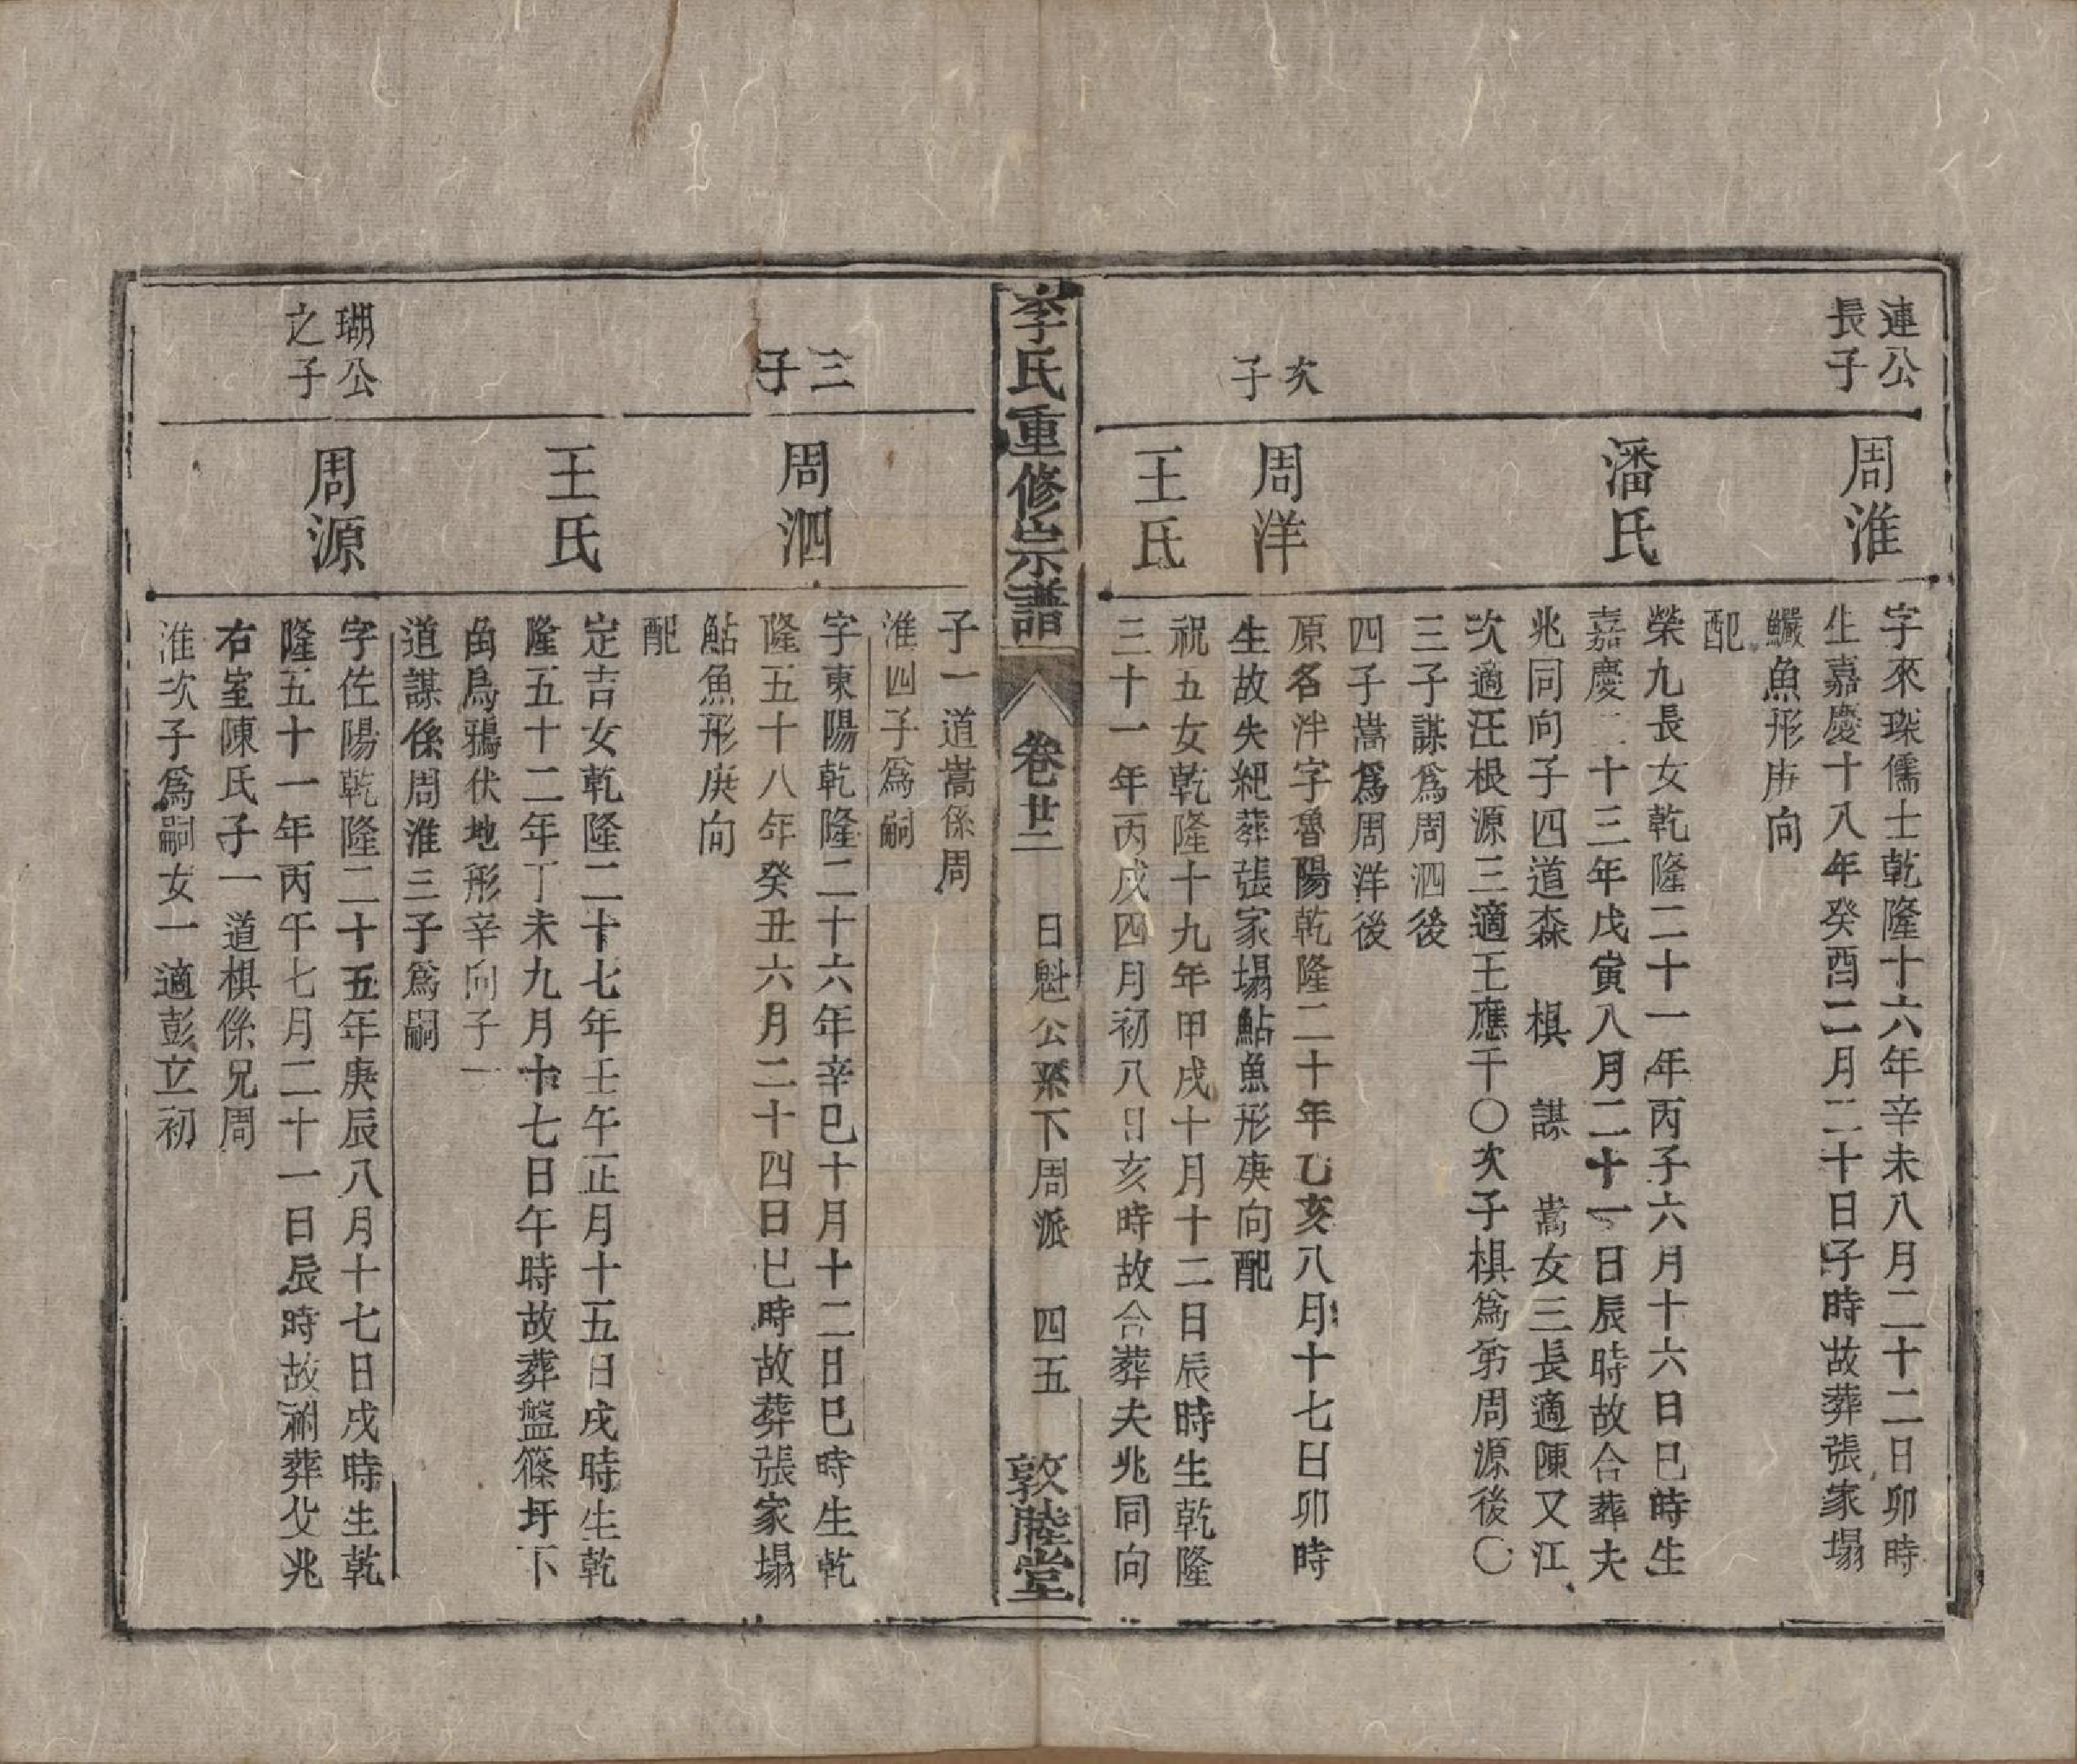 連公
長子
周淮
字來琛儒士乾隆十六年辛未八月二十二日卯時
生嘉慶十八年癸酉二月二十日子時故葬張家塌
魚形庚向
配
潘氏
榮九長女乾隆二十一年丙子六月十六日巳時生
嘉慶二十三年戊寅八月二十一日辰時故合葬夫
兆同向子四道森 棋 謀 嵩女三長適陳又江
次適汪根源三適王應干〇次子棋爲第周源後〇
三子謀爲周泗後
四子嵩爲周洋後
次
子
周洋
原名泮字魯陽乾隆二十年乙亥八月十七日卯時
生故失紀葬張家塌鮎魚形庚向配
王氏
祝五女乾隆十九年甲戌十月十二日辰時生乾隆
三十一年丙戌四月初八日亥時故合葬夫兆同向
李氏重修宗譜 卷廿二 日魁公桼下周派 四五 敦睦堂
子一道嵩係周
淮四子爲嗣
三
子
周泗
字東陽乾隆二十六年辛巳十月十二日巳時生乾
隆五十八年癸丑六月二十四日巳時故葬張家塌
鮎魚形庚向
配
王氏
定吉女乾隆二十七年壬午正月十五日戌時生乾
隆五十二年丁未九月十七日午時故葬盤篠圩下
角烏鴉伏地形辛向子一
道謀係周淮三子爲嗣
瑚公
之子
周源
字佐陽乾隆二十五年庚辰八月十七日戌時生乾
隆五十一年丙午七月二十一日辰時故祔葬父兆
右室陳氏子一道棋係兄周
淮次子爲嗣女一適彭立初